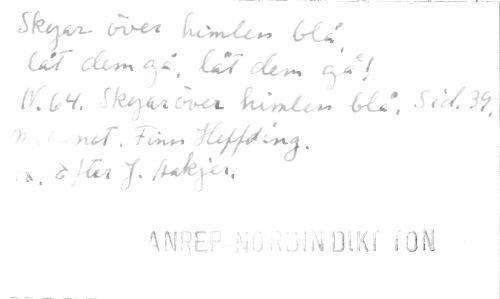 Skyar över himlen blå,
låt dem gå, låt dem gå!
N. 64. Skyar över himlen blå. Sid. 39.
not. Finn Höffding.
efter J. Aakjer.
ANREP-NORDIN DIKT TON